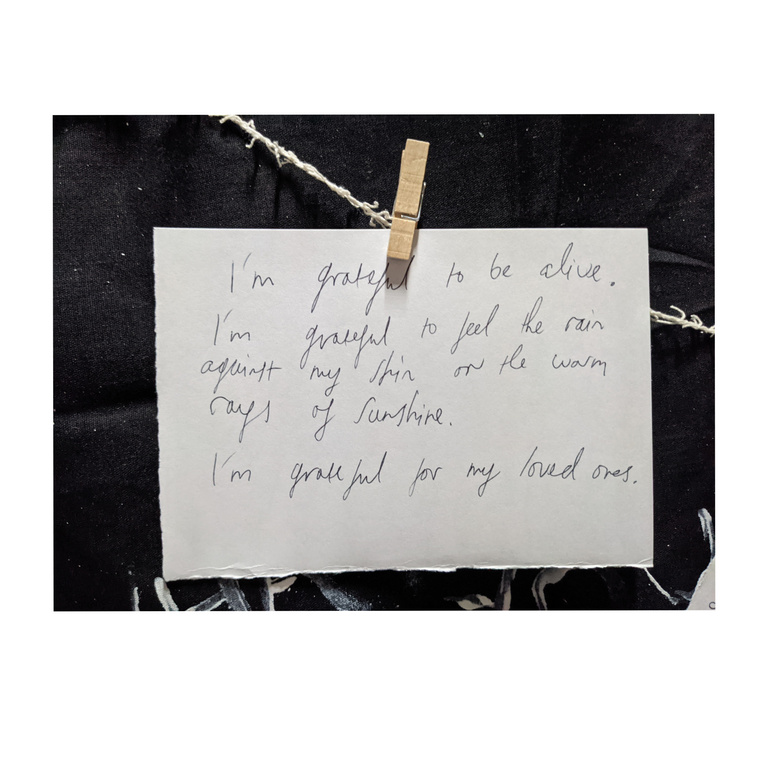 I'm grateful to be alive.
I'm grateful to feel the rain
against my skin or the warm
rays of sunshine.
I'm grateful for my loved ones.